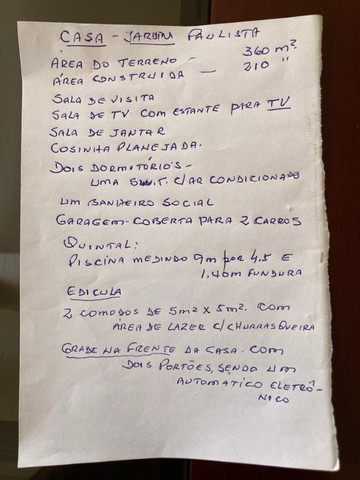 CASA - JARDIM PAULISTA
ÁREA DO TERRENO - 360 m²
ÁREA CONSTRUIDA — 210 "
SALA DE VISITA
SALA DE TV COM ESTANTE PARA TV
SALA DE JANTAR
COSINHA PLANEJADA.
DOIS DORMITÓRIOS -
UMA SUIT. C/AR CONDICIONADO
UM BANHEIRO SOCIAL
GARAGEM-COBERTA PARA 2 CARROS
QUINTAL:
PISCINA MEDINDO 9m por 4.5 E
1,40m FUNDURA
EDICULA
2 COMODOS DE 5m² x 5m². COM
ÁREA DE LAZER C/CHURRASQUEIRA
GRADE NA FRENTE DA CASA. COM
DOIS PORTÕES, SENDO UM
AUTOMATICO ELETRÔ-
NICO